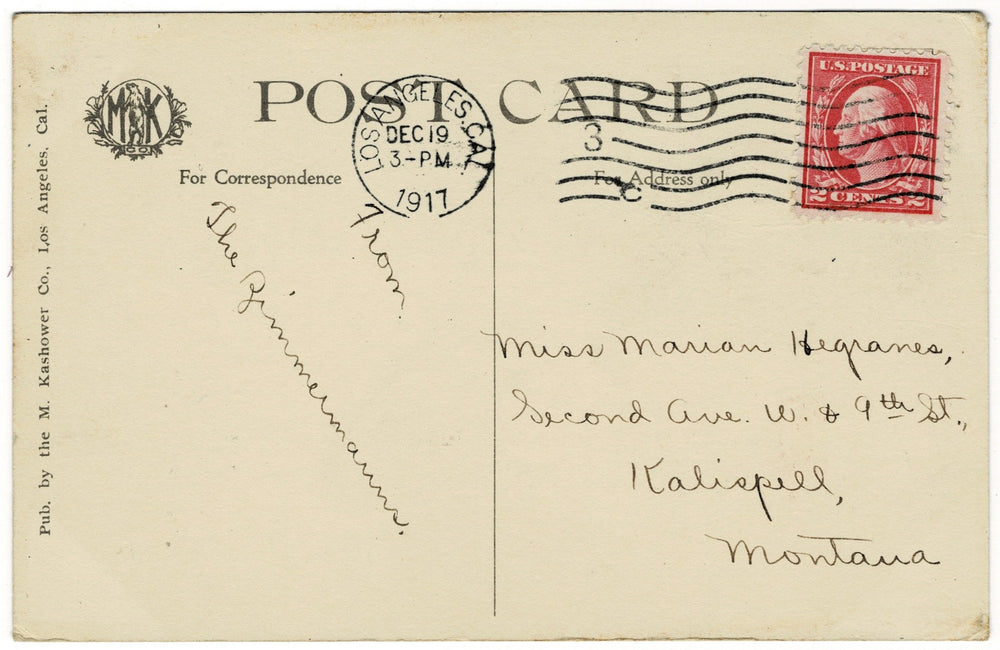 POST CARD
MK
CO
LOS ANGELES, CAL.
DEC 19
3-PM
1917
3
C
U.S. POSTAGE
2 CENTS 2
For Correspondence
For Address only
From
The Zimmermanns.
Miss Marian Hegranes,
Second Ave. W. & 9th St.,
Kalispell,
Montana
Pub. by the M. Kashower Co., Los Angeles, Cal.